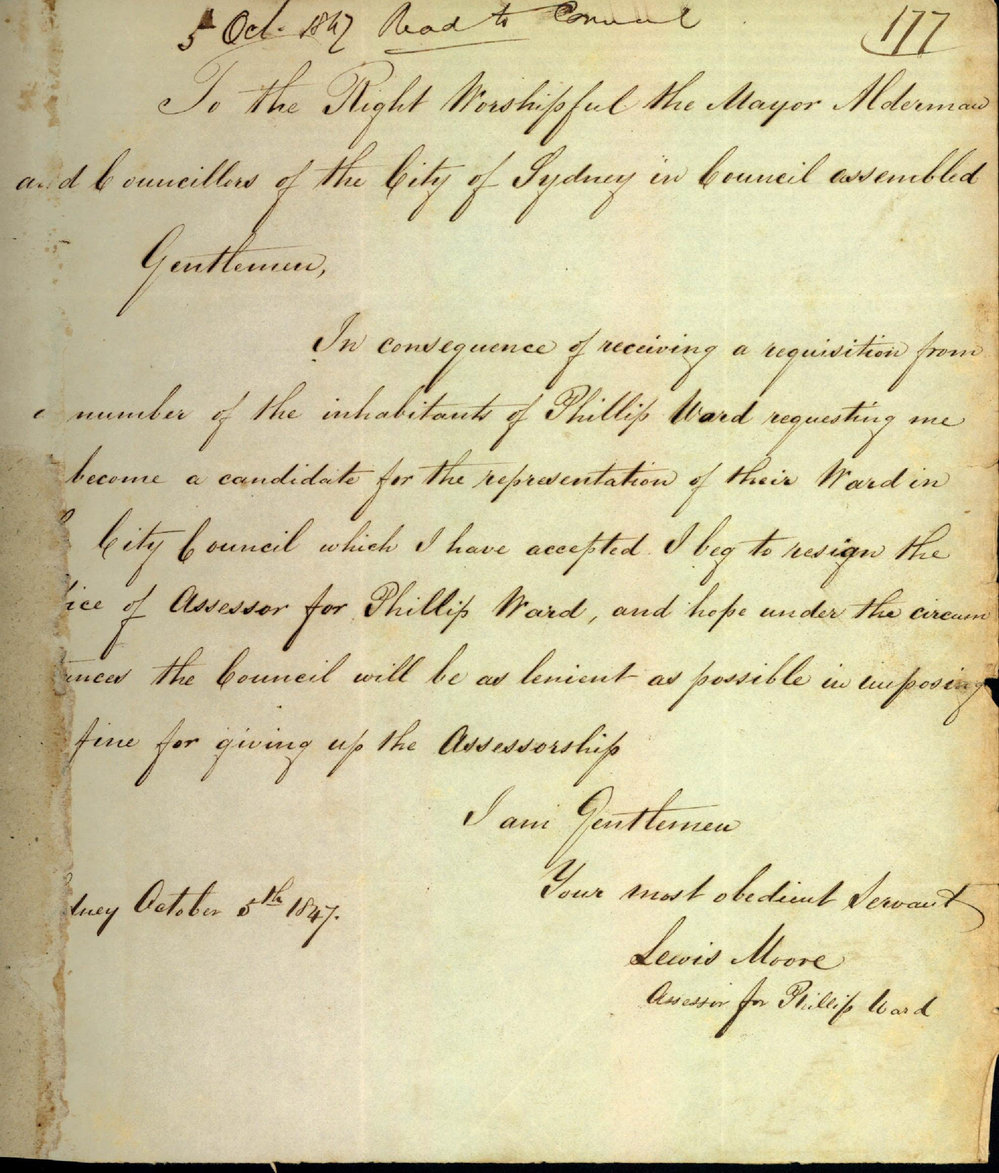 5 Oct. 1847 Read to Council
177
To the Right Worshipful the Mayor Alderman
and Councillors of the City of Sydney in Council assembled
Gentlemen,
In consequence of receiving a requisition from
number of the inhabitants of Phillip Ward requesting me
become a candidate for the representation of their Ward in
City Council which I have accepted. I beg to resign the
ice of Assessor for Phillip Ward, and hope under the circum
ances the Council will be as lenient as possible in imposing
fine for giving up the Assessorship
I am Gentlemen
Your most obedient Servant
dney October 5th 1847.
Lewis Moore
Assessor for Phillip Ward